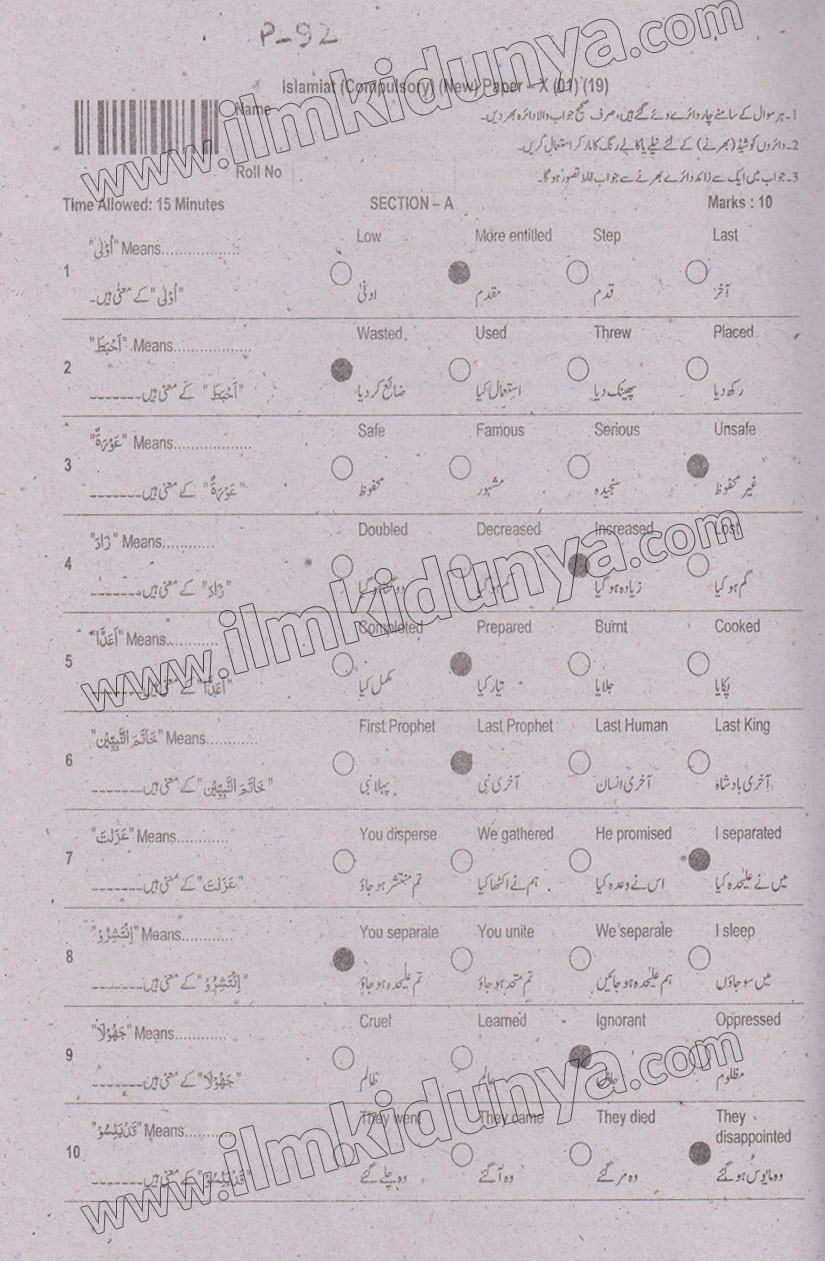 P-92
Islamiat (Compulsory) (New) Paper – X (01) (19)
Name
1۔ ہر سوال کے سامنے چار دائرے دئے گئے ہیں، صرف صحیح جواب والا دائرہ بھر دیں۔
2۔ دائروں کو شیڈ (بھرنے) کے لئے نیلے یا کالے رنگ کا مارکر استعمال کریں۔
Roll No
3۔ جواب میں ایک سے زائد دائرے بھرنے سے جواب غلط تصور ہوگا۔
Time Allowed: 15 Minutes SECTION – A Marks : 10
Low More entitled Step Last
1 "اَوْلٰی" Means.................
"اَوْلٰی" کے معنٰی ہیں۔ ادنیٰ مقدم قدم آخر
Wasted Used Threw Placed
2 "اَحْبَطَ" Means.................
"اَحْبَطَ" کے معنی ہیں------- ضائع کر دیا استعمال کیا پھینک دیا رکھ دیا
Safe Famous Serious Unsafe
3 "عَوْرَةٌ" Means.................
"عَوْرَةٌ" کے معنی ہیں------- محفوظ مشہور سنجیدہ غیر محفوظ
Doubled Decreased Increased Lost
4 "زَادَ" Means............
"زَادَ" کے معنی ہیں------- کم ہو گیا زیادہ ہو گیا گم ہو گیا
Completed Prepared Burnt Cooked
5 "اَعَدَّ" Means............
"اَعَدَّ" کے معنی ہیں------- مکمل کیا تیار کیا جلایا پکایا
First Prophet Last Prophet Last Human Last King
6 "خَاتَمَ النَّبِيّٖن" Means............
"خَاتَمَ النَّبِيّٖن" کے معنی ہیں------- پہلا نبی آخری نبی آخری انسان آخری بادشاہ
You disperse We gathered He promised I separated
7 "عَزَلتَ" Means............
"عَزَلتَ" کے معنی ہیں------- تم منتشر ہو جاؤ ہم نے اکٹھا کیا اس نے وعدہ کیا میں نے علیحدہ کیا
You separate You unite We separate I sleep
8 "اِنْتَشِرُوْ" Means............
"اِنْتَشِرُوْ" کے معنی ہیں------- تم علیحدہ ہو جاؤ تم متحد ہو جاؤ ہم علیحدہ ہو جائیں میں سو جاؤں
Cruel Learned Ignorant Oppressed
9 "جَهُوْلَا" Means............
"جَهُوْلَا" کے معنی ہیں------- ظالم عالم جاہل مظلوم
They went They came They died They disappointed
10 "قَدْيَئِسُوْ" Means............
"قَدْيَئِسُوْ" کے معنی ہیں------- وہ چلے گئے وہ آ گئے وہ مر گئے وہ مایوس ہو گئے
www.ilmkidunya.com
www.ilmkidunya.com
www.ilmkidunya.com